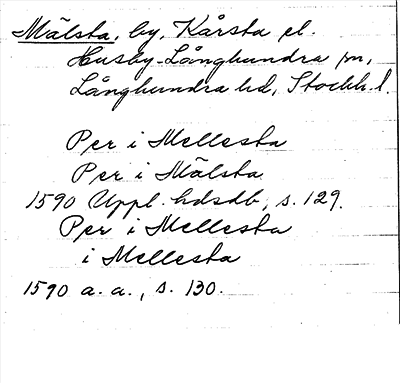 Mälsta, by, Kårsta el.
Husby-Långhundra sn,
Långhundra hd, Stockh. l.
Per i Mellesta
Per i Mälsta
1590 Uppl. hdsdb, s. 129.
Per i Mellesta
i Mellesta
1590 a. a., s. 130.